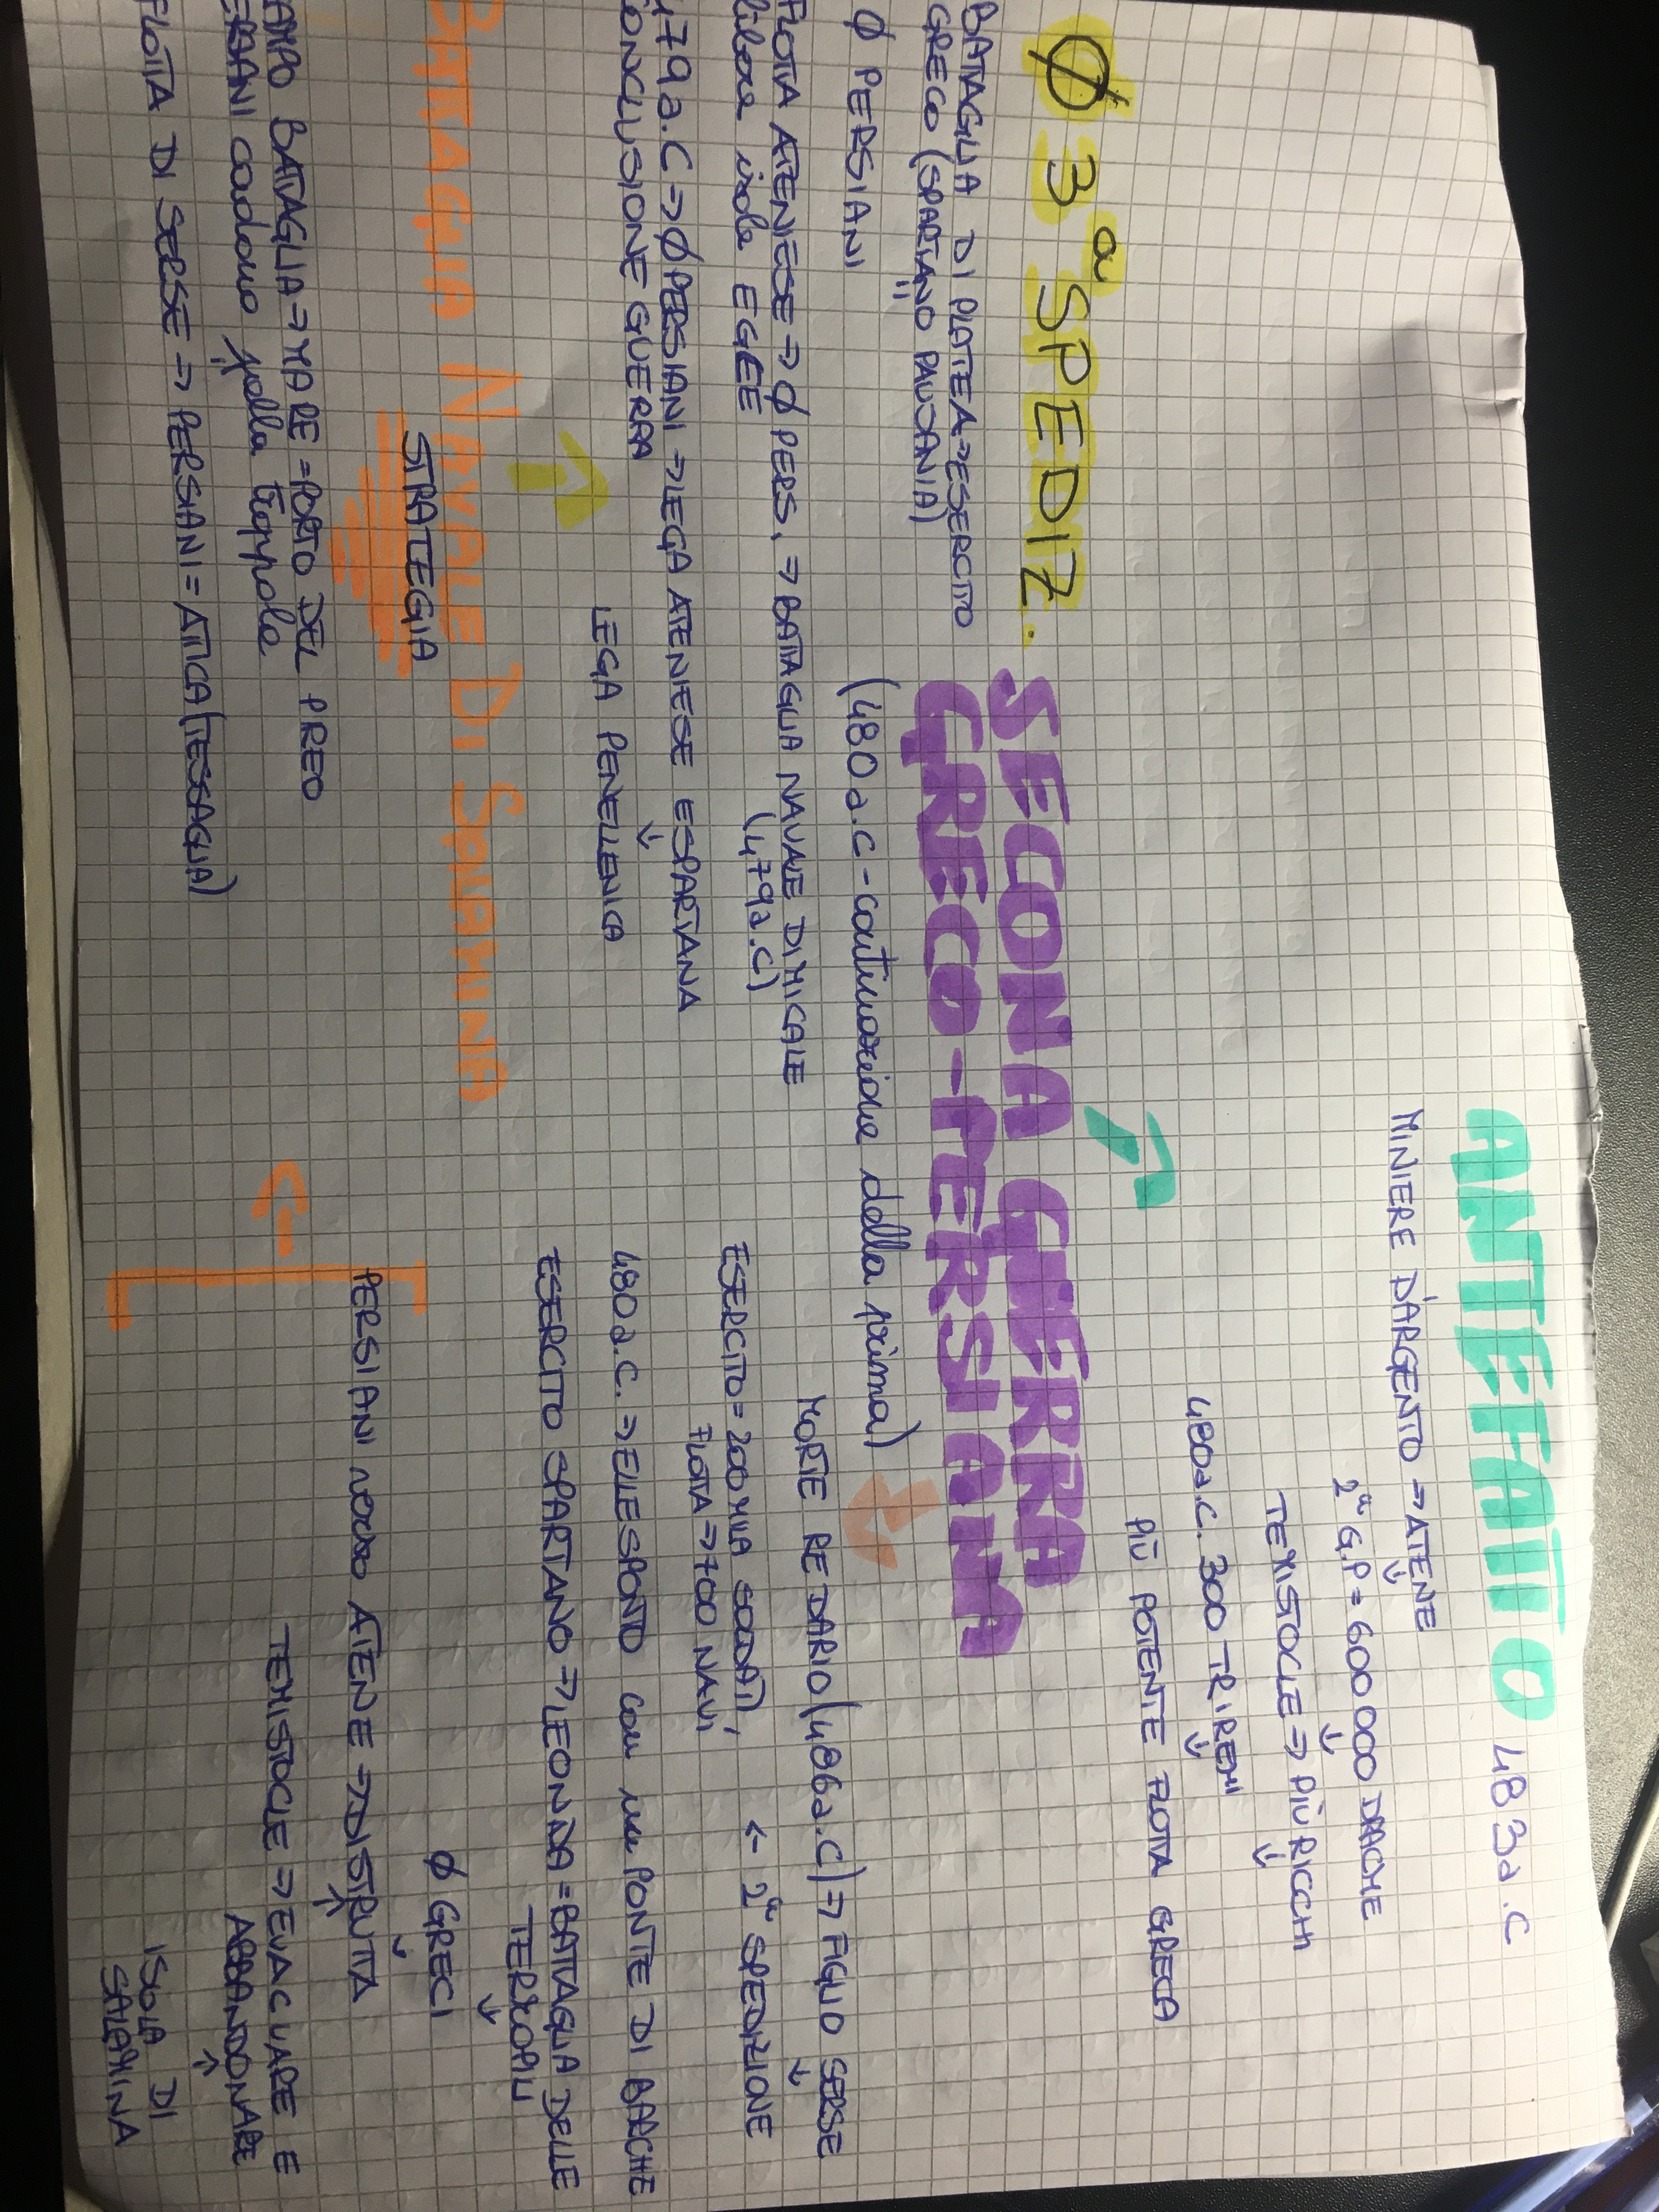 ANTEFATTO 483a.C
MINIERE D'ARGENTO => ATENE
2ª G.P = 600000 DRACME
TEMISTOCLE => PIÙ RICCHI
480a.C. 300 TRIREMI
PIÙ POTENTE FLOTTA GRECA
SECONA GUERRA
GRECO-PERSIANA
(480a.C-continuazione della prima)
MORTE RE DARIO (486a.C) => FIGLIO SERSE
ESERCITO = 200MILA SOLDATI, <- 2ª SPEDIZIONE
FLOTTA => 700 NAVI
480a.C. => ELLESPONTO con un PONTE DI BARCHE
ESERCITO SPARTANO => LEONIDA = BATTAGLIA DELLE
TERMOPILI
Ø GRECI
PERSIANI verso ATENE => DISTRUTTA
TEMISTOCLE => EVACUARE E
ABBANDONARE
ISOLA DI
SALAMINA
BATTAGLIA NAVALE DI SALAMINA
STRATEGIA
AMPO BATTAGLIA => MARE = PORTO DEL PIREO
ERSIANI cadono nella trappola
FLOTTA DI SERSE => PERSIANI = ATTICA (TESSAGLIA)
Ø 3ª SPEDIZ.
BATTAGLIA DI PLATEA => ESERCITO
GRECO (SPARTANO PAUSANIA)
Ø PERSIANI
FLOTTA ATENIESE => Ø PERS. => BATTAGLIA NAVALE DI MICALE
libera isole EGEE (479a.C)
479a.C => Ø PERSIANI => LEGA ATENIESE E SPARTANA
ONCLUSIONE GUERRA
LEGA PENELLENICA